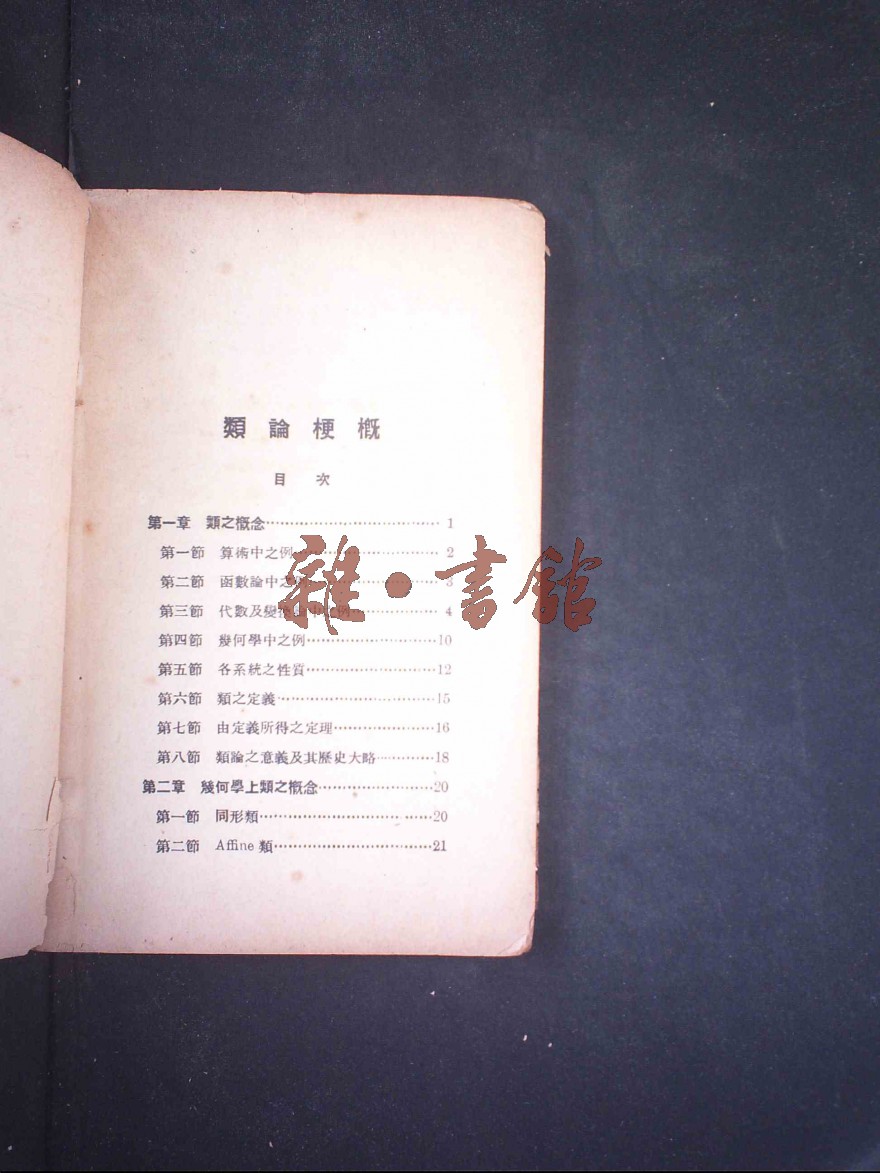 類論梗槪
目次
第一章 類之槪念 1
第一節 算術中之例 2
第二節 函數論中之例 3
第三節 代數及變換論中之例 4
第四節 幾何學中之例 10
第五節 各系統之性質 12
第六節 類之定義 15
第七節 由定義所得之定理 16
第八節 類論之意義及其歷史大略 18
第二章 幾何學上類之槪念 20
第一節 同形類 20
第二節 Affine 類 21
雜・書館